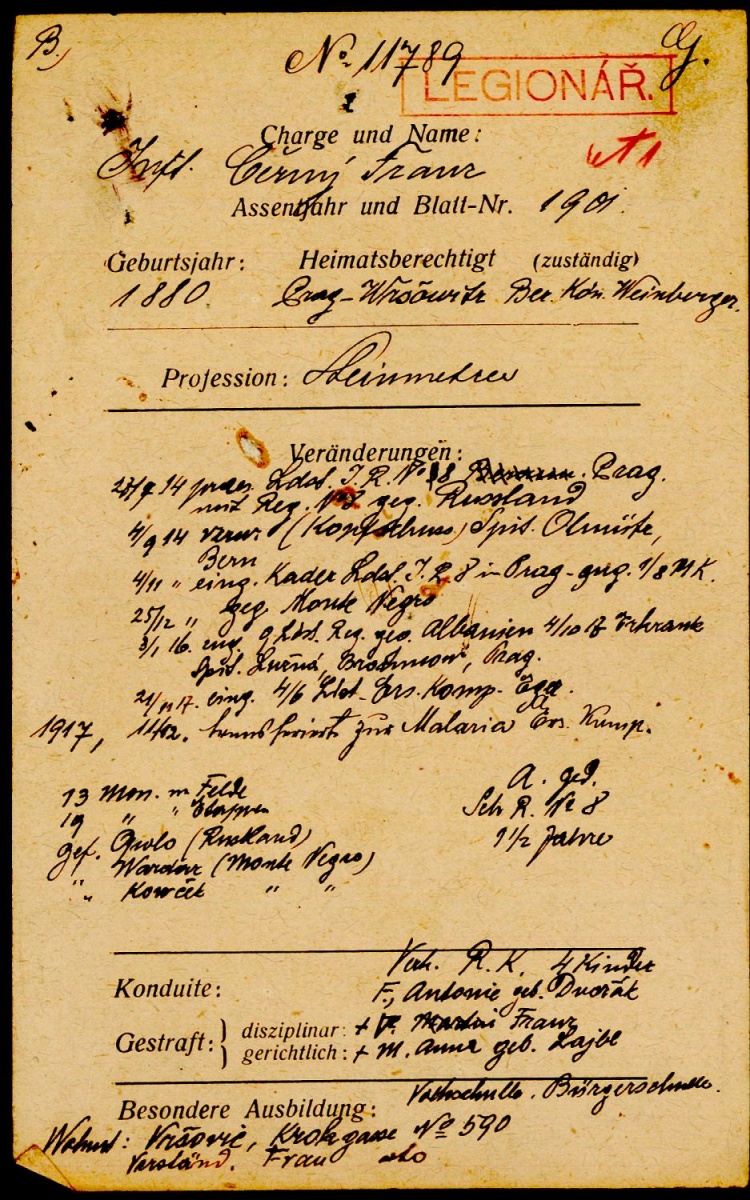 B.)
No 11789
G.
LEGIONÁŘ.
Charge und Name:
Inft. Černý Franz
Assentjahr und Blatt-Nr. 1901.
Geburtsjahr: Heimatsberechtigt (zuständig)
1880. Prag-Wršowitz Bez. Kön. Weinberger.
Profession: Steinmetzer
Veränderungen:
14 praes. Ldst. I. R. No 8 Prag.
mit Reg. No 8 geg. Russland
4/9 14 verw. (Kopfschuss) Spit. Olmütz,
Bern
4/11 " eing. Kader Ldst. I. R. 8 in Prag - gng. 1/8 M K.
25/12 " geg Monte Negro
3/1 16. eng. 9 Ldst. Reg. geg. Albanien 4/10 17 Erkrank
Spit. Prag.
21/11 17. eing. 4/6 Ldst. Ers. Komp. Eger.
1917, 11/12. transferiert zur Malaria Ers. Kump.
13 Mon. im Felde A. ged.
19 " " Etappen Sch R. No 8
gef. (Russland) 1 1/2 Jahre
" Wardar (Monte Negro)
" " "
Verh. R. K. 4 Kinder
Konduite: F., Antonie geb. Dvořák
Gestraft: disziplinar: + V. Franz
gerichtlich: + M. Anna geb. Lajbl
Besondere Ausbildung: Volksschulle. Bürgerschulle.
Wohnt: Vršovic, Krokgasse No 590
Verständ. Frau dto